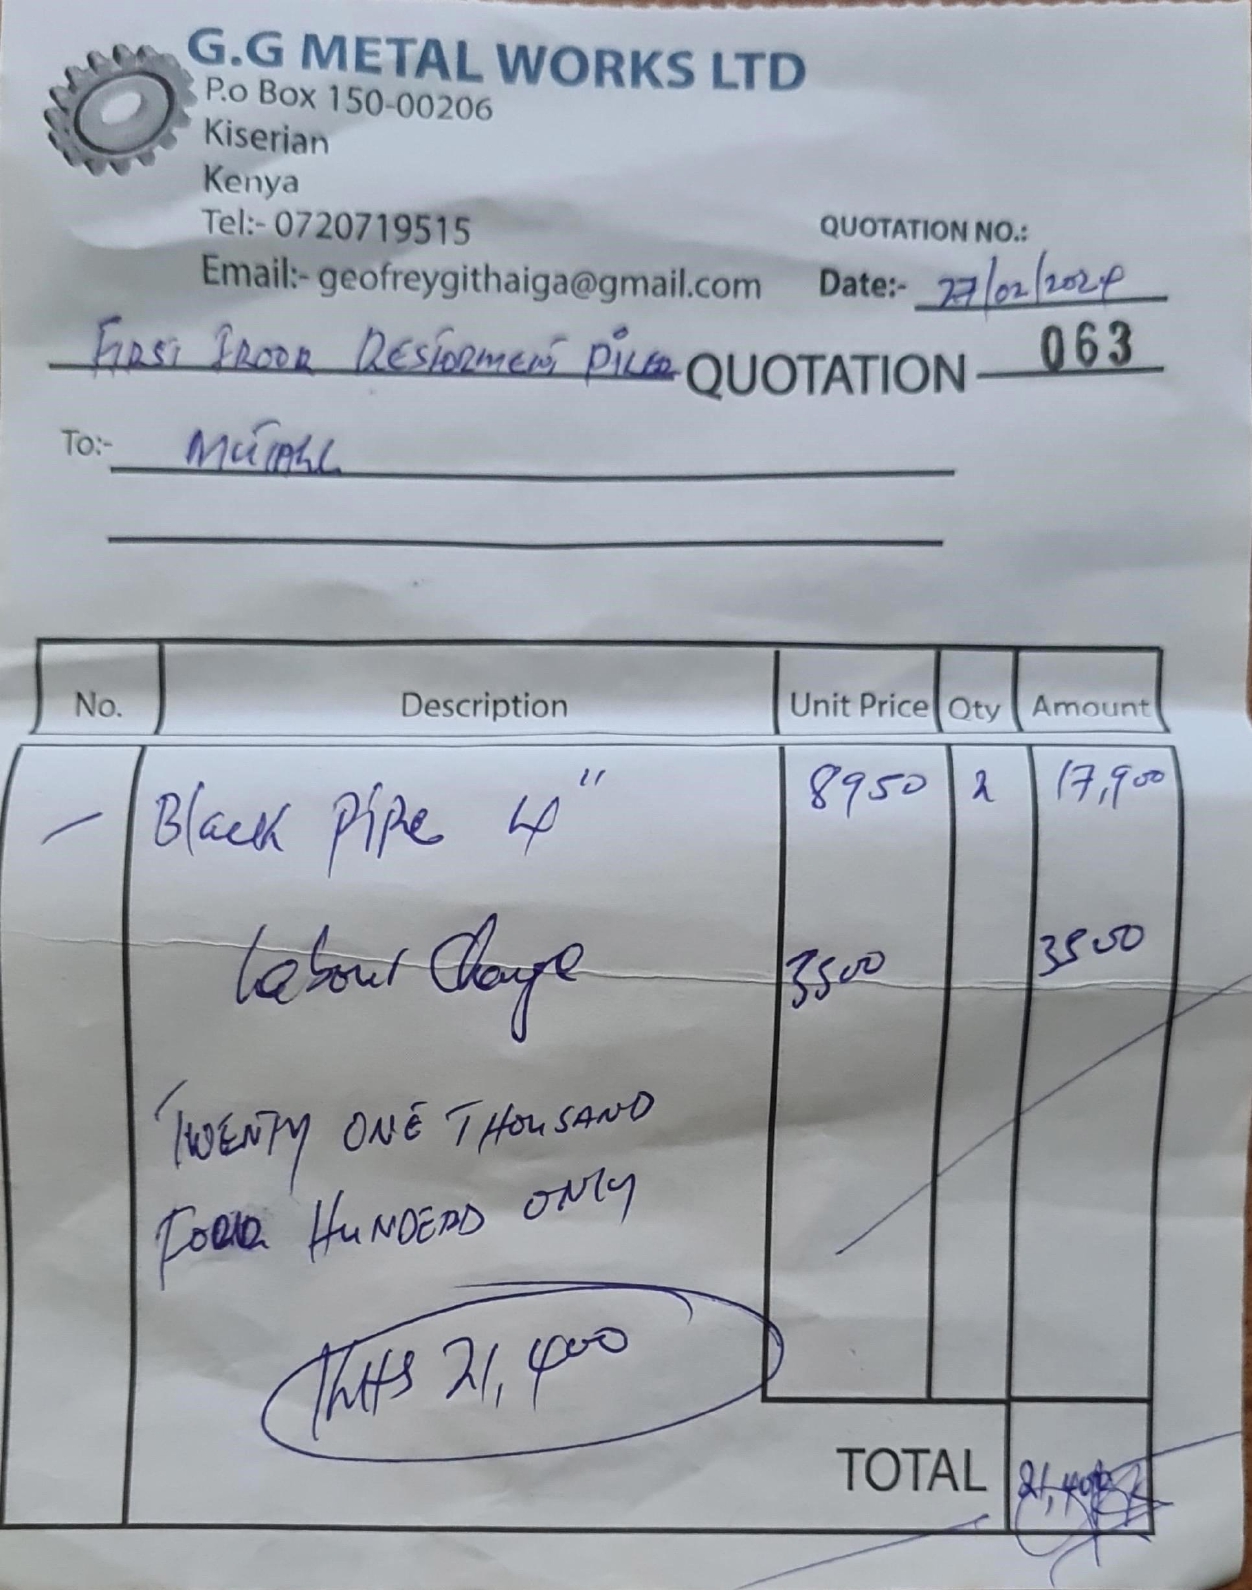 G.G METAL WORKS LTD
P.o Box 150-00206
Kiserian
Kenya
Tel:- 0720719515
Email:- geofreygithaiga@gmail.com
QUOTATION NO.:
Date:- 27/02/2024
FIRST
QUOTATION 063
To:-
No. Description Unit Price Qty Amount
Black Pipe 4" 8950 2 17,900
Labour Charge 3500 3500
TWENTY ONE THOUSAND
HUNDERD ONLY
21,400
TOTAL 21,400